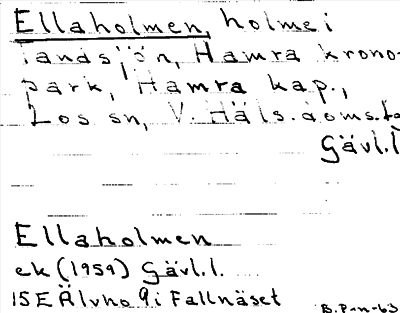 Ellaholmen, holme i
Tandsjön, Hamra krono-
park, Hamra kap.,
Los sn, V. Häls. doms.
Gävl. l
Ellaholmen
ek (1959) Gävl. l.
15E Älvho 9i Fallnäset
B. P-n-63